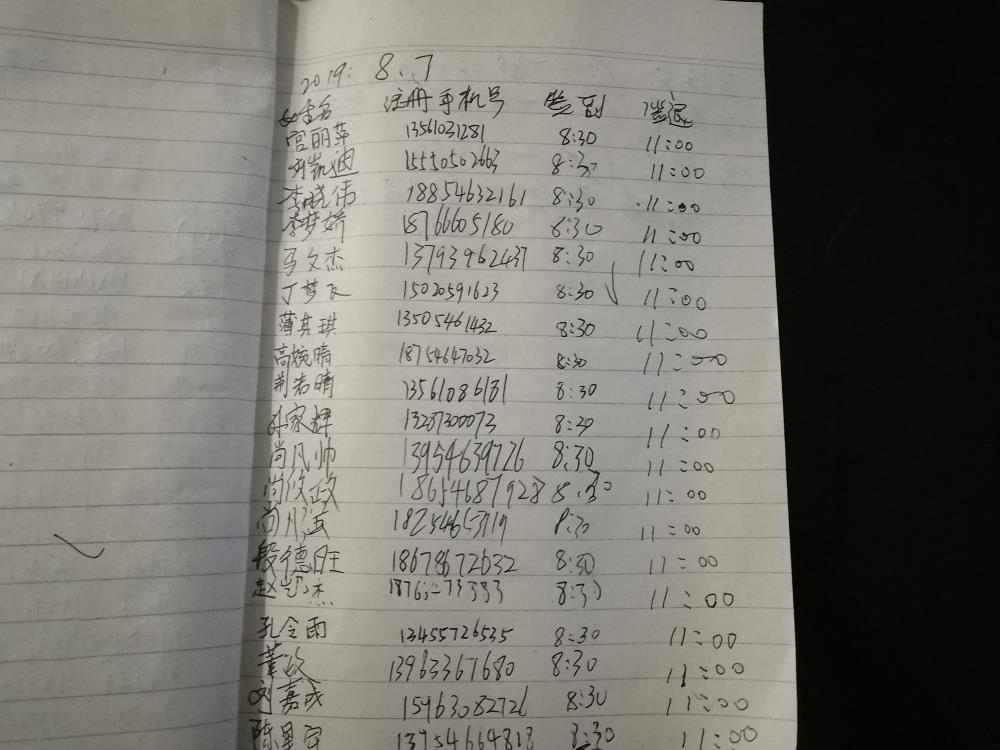 2019: 8.7
姓名 注册手机号 签到 签退
宫丽萍 13561031281 8:30 11:00
刘凯迪 15550502663 8:30 11:00
李晓伟 18854632161 8:30 11:00
李梦娇 18766605180 8:30 11:00
马文杰 13793962437 8:30 11:00
丁梦飞 15020591623 8:30 11:00
薄其琪 13505461432 8:30 11:00
高婉晴 18754647032 8:30 11:00
荆若晴 13561086181 8:30 11:00
孙家辉 13287300073 8:30 11:00
尚凡帅 13954639726 8:30 11:00
尚俊政 18654687928 8:30 11:00
尚 18254653719 8:30 11:00
段德旺 18678672632 8:30 11:00
赵 杰 8:30 11:00
孔令雨 13455726535 8:30 11:00
董政 13963367680 8:30 11:00
刘嘉成 15963082726 8:30 11:00
陈星宇 13954664818 8:30 11:00